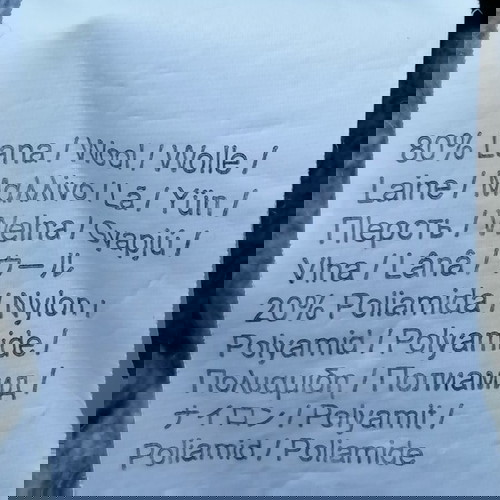 80% Lana / Wool / Wolle /
Laine / Μαλλινο / Lã / Yün /
Шерсть / Wełna / Gyapjú /
Vlna / Lână / ウール
20% Poliamida / Nylon /
Polyamid / Polyamide /
Πολυαμιδη / Полиамид /
ナイロン / Polyamit /
Poliamid / Poliamide